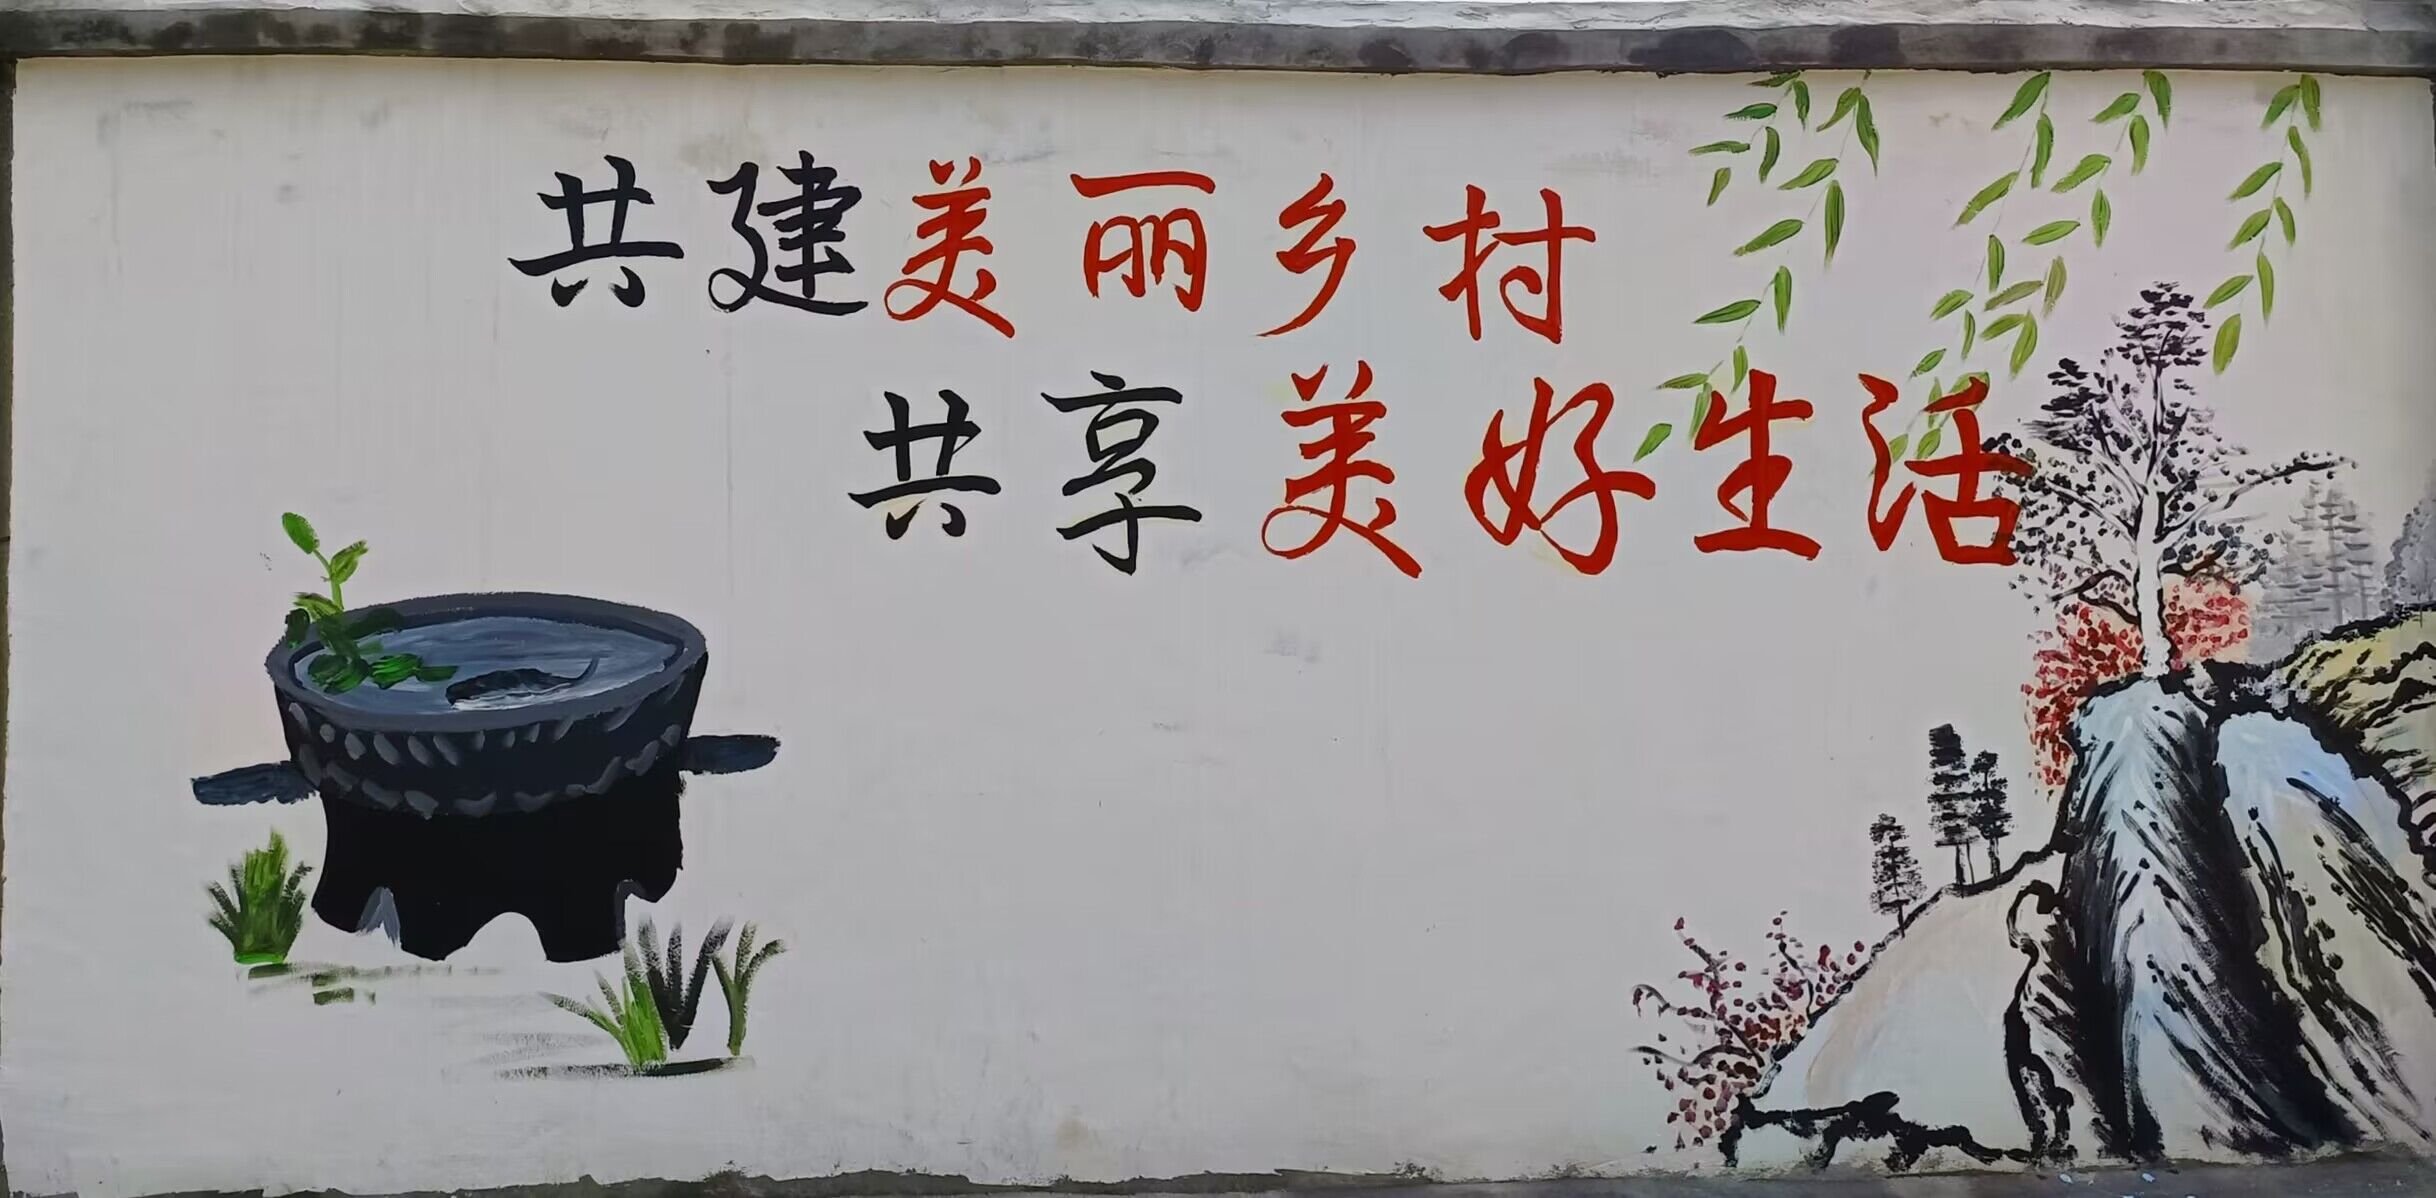 共建美丽乡村
共享美好生活